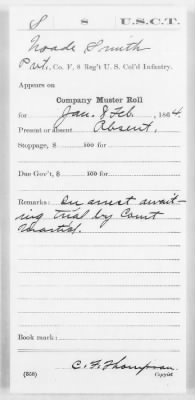 S 8 U.S.C.T.
Noade Smith
Pvt., Co. F, 8 Reg't U. S. Col'd Infantry.
Appears on
Company Muster Roll
for Jan. & Feb., 1864.
Present or absent Absent.
Stoppage, $ 100 for
Due Gov't, $ 100 for
Remarks: In arrest await-
ing trial by Court
Martial.
Book mark:
(358) C. F. Thompson
Copyist